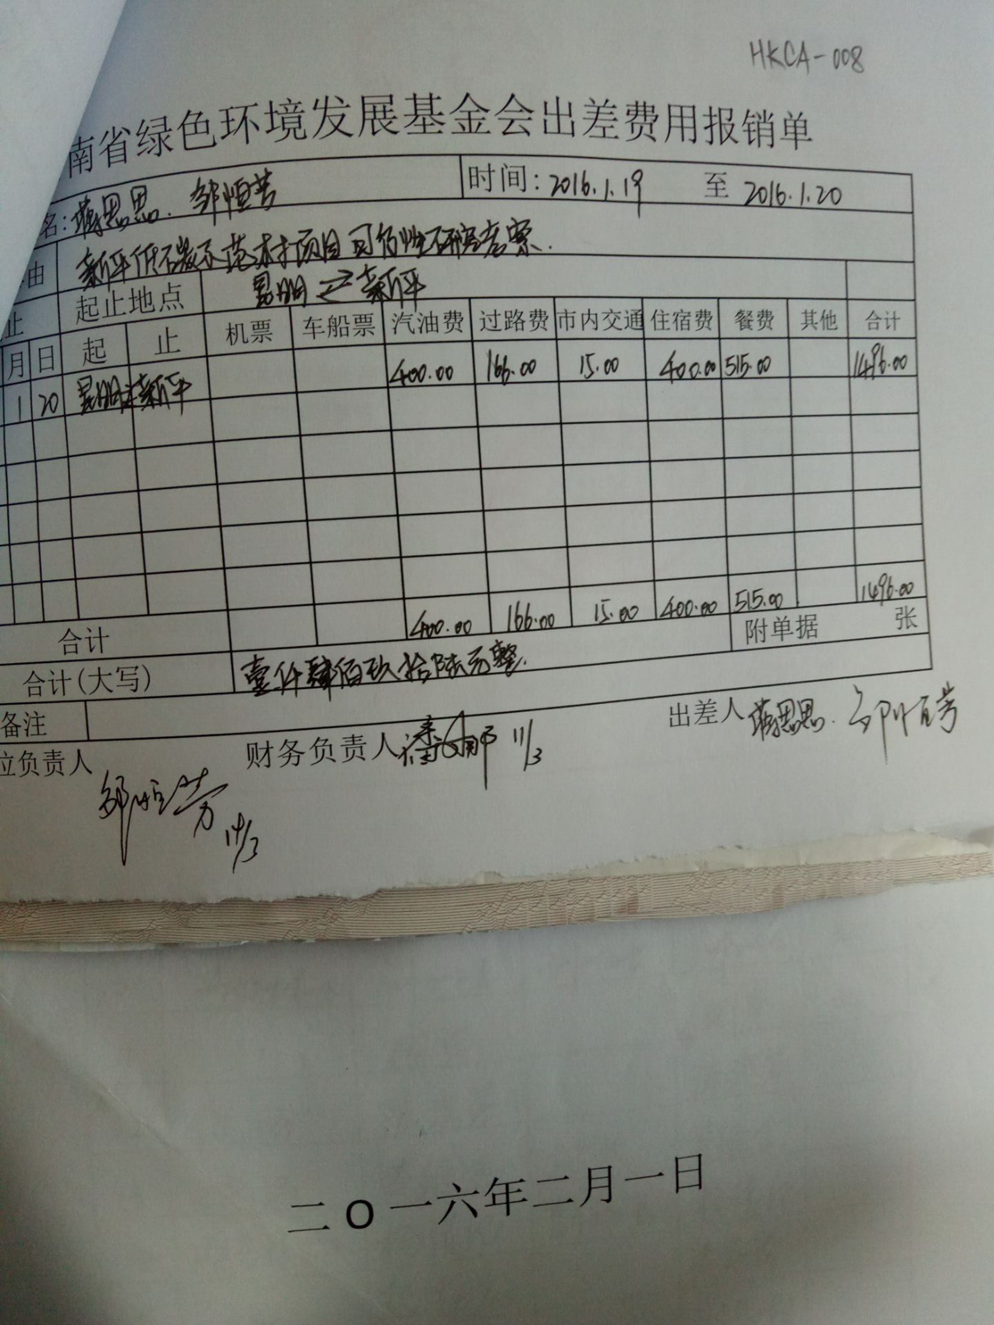 HKCA-008
南省绿色环境发展基金会出差费用报销单
名: 蒋思思. 邹恒芳 时间: 2016.1.19 至 2016.1.20
由 新平低碳示范村项目可行性研究考察.
止 起止地点 昆明⇄新平
月 日 起 止 机票 车船票 汽油费 过路费 市内交通 住宿费 餐费 其他 合计
1 20 昆明 新平 400.00 166.00 15.00 400.00 515.00 1496.00
合计 400.00 166.00 15.00 400.00 515.00 1496.00
合计(大写) 壹仟肆佰玖拾陆元整. 附单据 张
备注
位负责人 邹恒芳 财务负责人 11/3 出差人 蒋思思. 邹恒芳
二O一六年二月一日